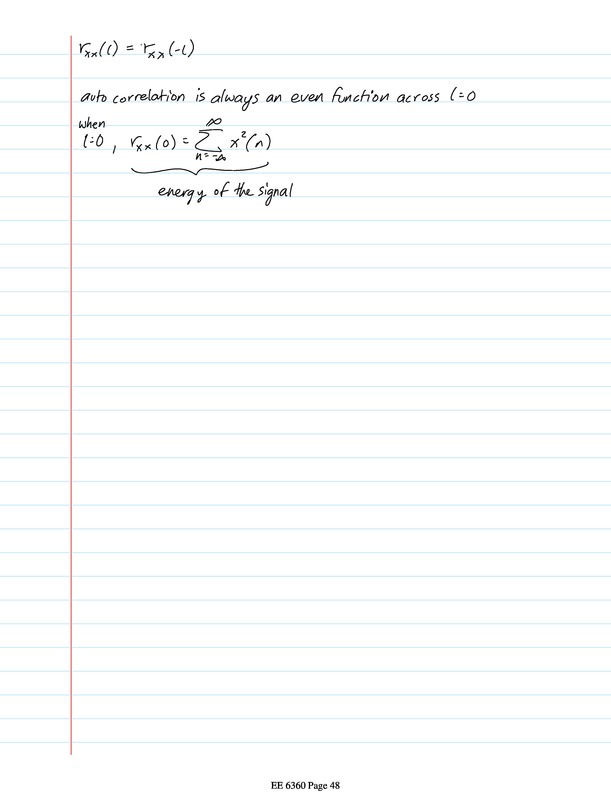 rxx(l) = rxx(-l)
auto correlation is always an even function across l=0
when
l=0, rxx(0) = ∑ n=-∞ ∞ x²(n)
energy of the signal
EE 6360 Page 48